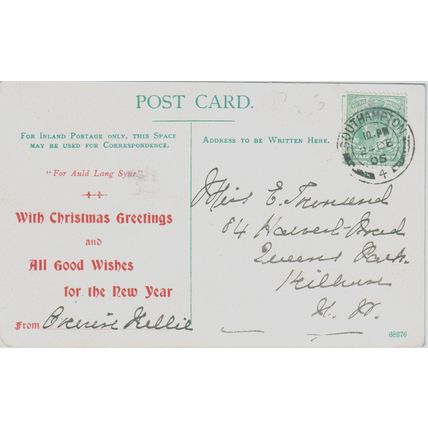 POST CARD.
FOR INLAND POSTAGE ONLY, THIS SPACE
MAY BE USED FOR CORRESPONDENCE.
"For Auld Lang Syne"
With Christmas Greetings
and
All Good Wishes
for the New Year
From Nellie
ADDRESS TO BE WRITTEN HERE.
SOUTHAMPTON
10. PM
24 DE
05
4
Miss E.
84 Road
Queens Park
Kilburn
N. W.